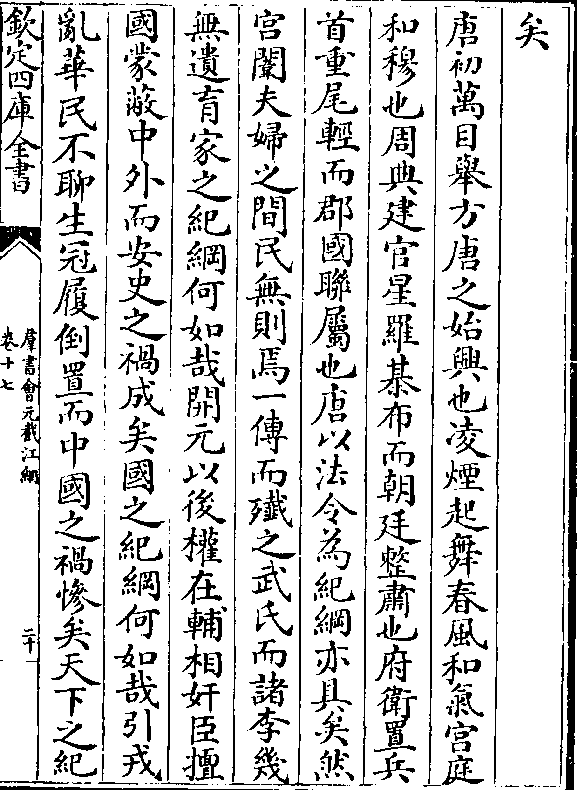 矣
唐初萬目舉方唐之始興也凌煙起舞春風和氣宫庭
和穆也周典建官星羅棊布而朝廷整肅也府衛置兵
首重尾輕而郡國聯屬也唐以法令為紀綱亦具矣然
宫闈夫婦之間民無則焉一傳而殱之武氏而諸李幾
無遺育家之紀綱何如哉開元以後權在輔相奸臣擅
國蒙蔽中外而安史之禍成矣國之紀綱何如哉引戎
亂華民不聊生冠履倒置而中國之禍慘矣天下之紀
欽定四庫全書
羣書會元截江網
卷十七
二十